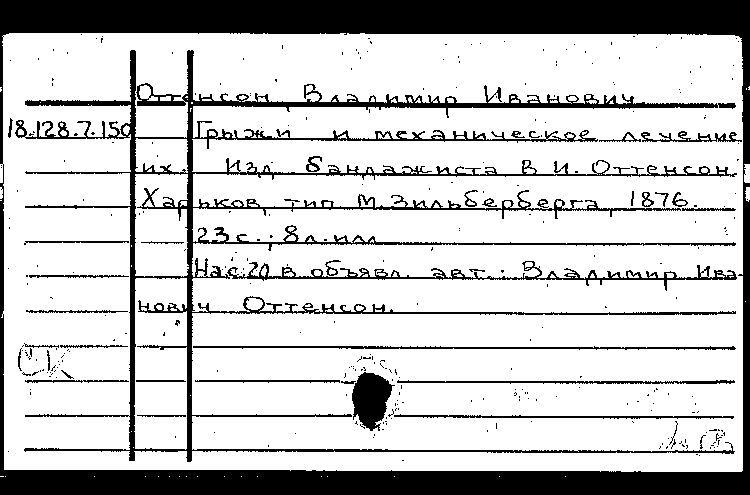 Оттенсон, Владимир Иванович
18.128.7.150 Грыжи и механическое лечение
их. Изд. бандажиста В. И. Оттенсон.
Харьков, тип. М. Зильберберга, 1876.
23 с.; 8 л. илл.
На с. 20 в объявл. авт.: Владимир Ива-
нович Оттенсон.
СК